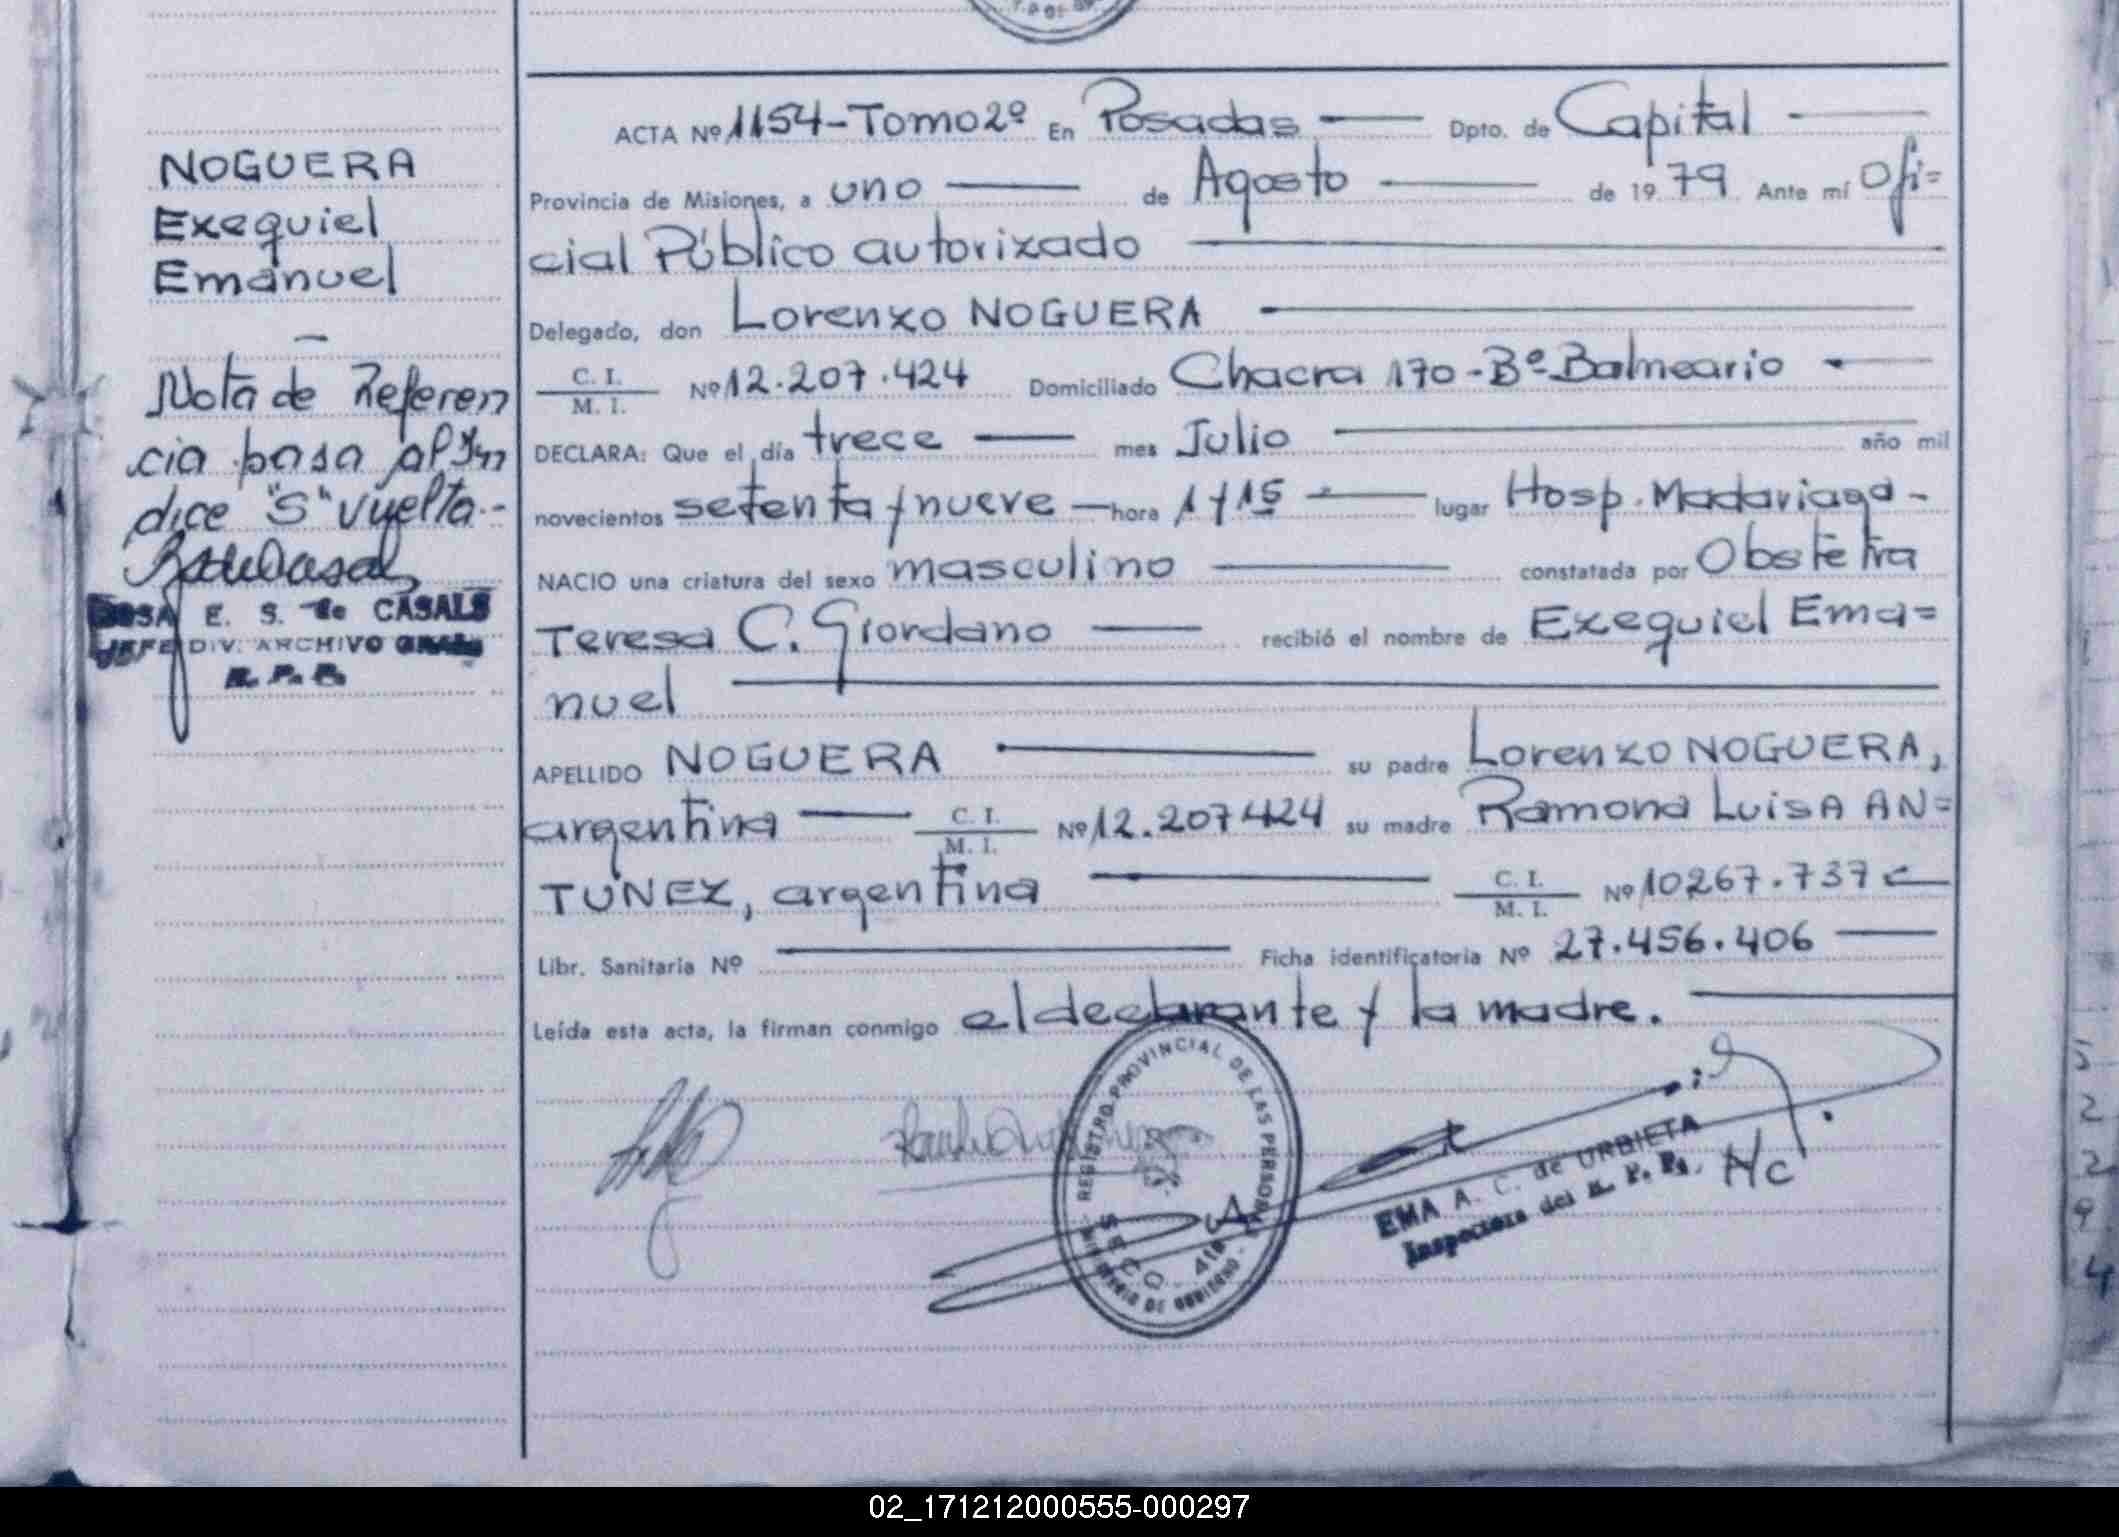 NOGUERA
Exequiel
Emanuel
Nota de Referen
cia pasa al Ín
dice "S" vuelta.-
ROSA E. S. de CASALS
JEFE DIV. ARCHIVO GRAL.
R. P. P.
ACTA Nº 1154-Tomo 2º En Posadas Dpto. de Capital
Provincia de Misiones, a uno de Agosto de 1979 Ante mí Ofi=
cial Público autorizado
Delegado, don Lorenzo NOGUERA
C. I. / M. I. Nº 12.207.424 Domiciliado Chacra 170-Bº Balneario
DECLARA: Que el día trece mes Julio año mil
novecientos setenta y nueve hora 1 y 15 lugar Hosp. Madariaga-
NACIO una criatura del sexo masculino constatada por Obstetra
Teresa C. Giordano recibió el nombre de Exequiel Ema=
nuel
APELLIDO NOGUERA su padre Lorenzo NOGUERA,
argentina C. I. / M. I. Nº 12.207424 su madre Ramona Luisa AN=
TUNEZ, argentina C. I. / M. I. Nº 10267.737
Libr. Sanitaria Nº Ficha identificatoria Nº 27.456.406
Leída esta acta, la firman conmigo el declarante y la madre.
REGISTRO PROVINCIAL DE LAS PERSONAS
MINISTERIO DE GOBIERNO
EMA A. C. de URBIETA
Inspectora del R. P. P. A/C
02_171212000555-000297